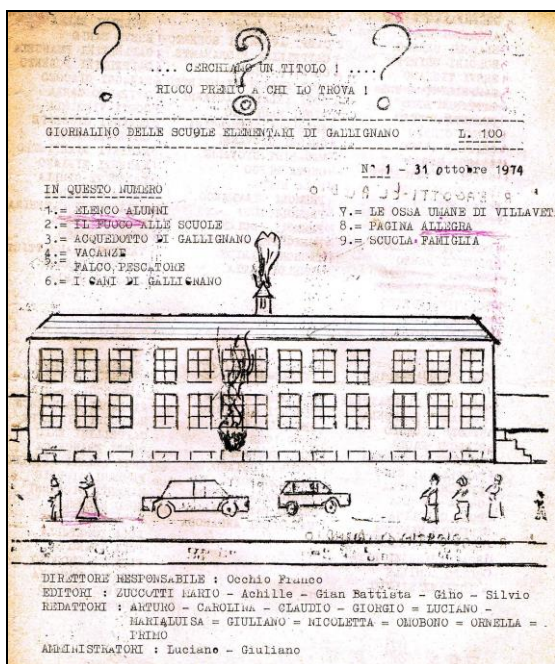 .... CERCHIAMO UN TITOLO ! ....
RICCO PREMIO A CHI LO TROVA !
GIORNALINO DELLE SCUOLE ELEMENTARI DI GALLIGNANO L. 100
N° 1 - 31 ottobre 1974
IN QUESTO NUMERO
1.= ELENCO ALUNNI
2.= IL FUOCO ALLE SCUOLE
3.= ACQUEDOTTO DI GALLIGNANO
4.= VACANZE
5.= FALCO PESCATORE
6.= I CANI DI GALLIGNANO
7.= LE OSSA UMANE DI VILLAVET
8.= PAGINA ALLEGRA
9.= SCUOLA FAMIGLIA
DIRETTORE RESPONSABILE : Occhio Franco
EDITORI : ZUCCOTTI MARIO - Achille - Gian Battista - Gino - Silvio
REDATTORI : ARTURO - CAROLINA - CLAUDIO - GIORGIO = LUCIANO -
MARIALUISA = GIULIANO = NICOLETTA = OMOBONO = ORNELLA =
PRIMO
AMMINISTRATORI : Luciano - Giuliano